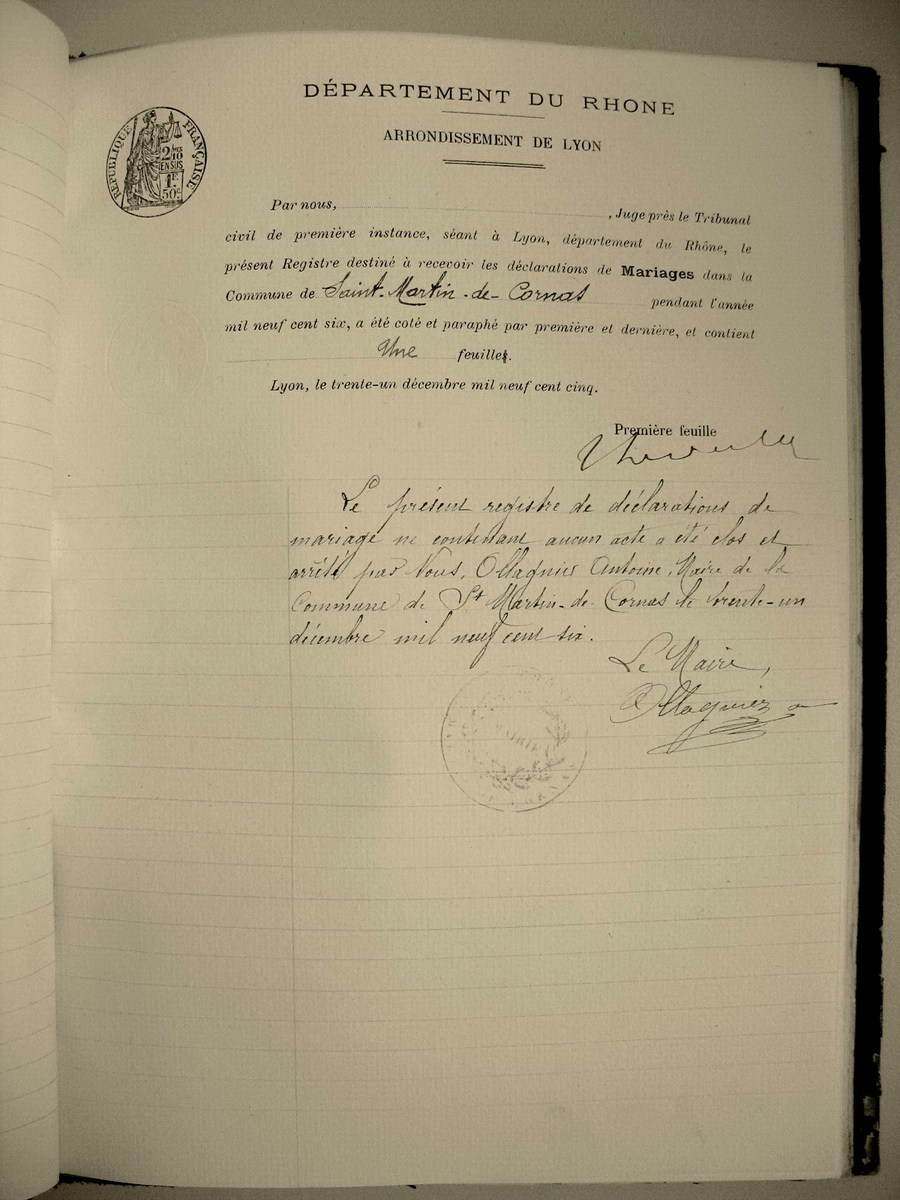 DÉPARTEMENT DU RHONE
ARRONDISSEMENT DE LYON
RÉPUBLIQUE FRANÇAISE
2/10
EN SUS
1F
50c
Par nous, , Juge près le Tribunal
civil de première instance, séant à Lyon, département du Rhône, le
présent Registre destiné à recevoir les déclarations de Mariages dans la
Commune de Saint-Martin-de-Cornas pendant l'année
mil neuf cent six, a été coté et paraphé par première et dernière, et contient
Une feuilles.
Lyon, le trente-un décembre mil neuf cent cinq.
Première feuille
Le présent registre de déclarations de
mariage ne contenant aucun acte a été clos et
arrêté par Nous, Ollagnier Antoine, Maire de la
Commune de St Martin-de-Cornas le trente-un
décembre mil neuf cent six.
Le Maire,
Ollagnier a